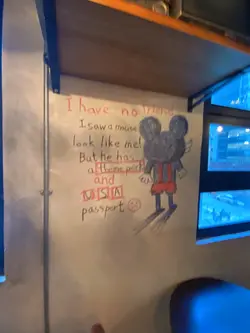 I have no friends
I saw a mouse
look like me!
But he has
a theme park
and
USA
passport ☹